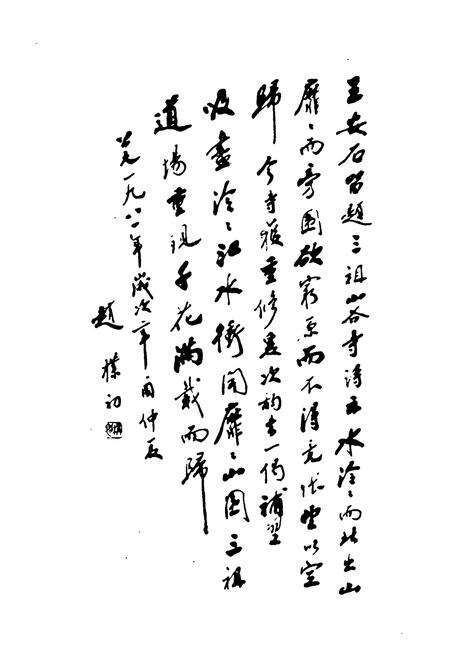 王安石留題三祖山谷寺詩云水泠〻而北出山
靡〻而旁圍欲窮原而不得竟悵望以空
歸今寺獲重修爰次韵一偈補壁
吸盡泠〻江水衝開靡〻山圍三祖
道場重現千花滿載而歸
公元一九八一年歲次辛酉仲夏
趙樸初